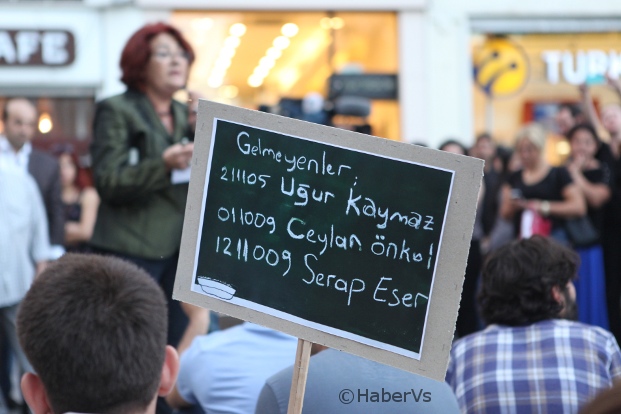 AFE
TURK
Gelmeyenler;
211105 Uğur Kaymaz
011009 Ceylan önkol
1211009 Serap Eser
©HaberVs